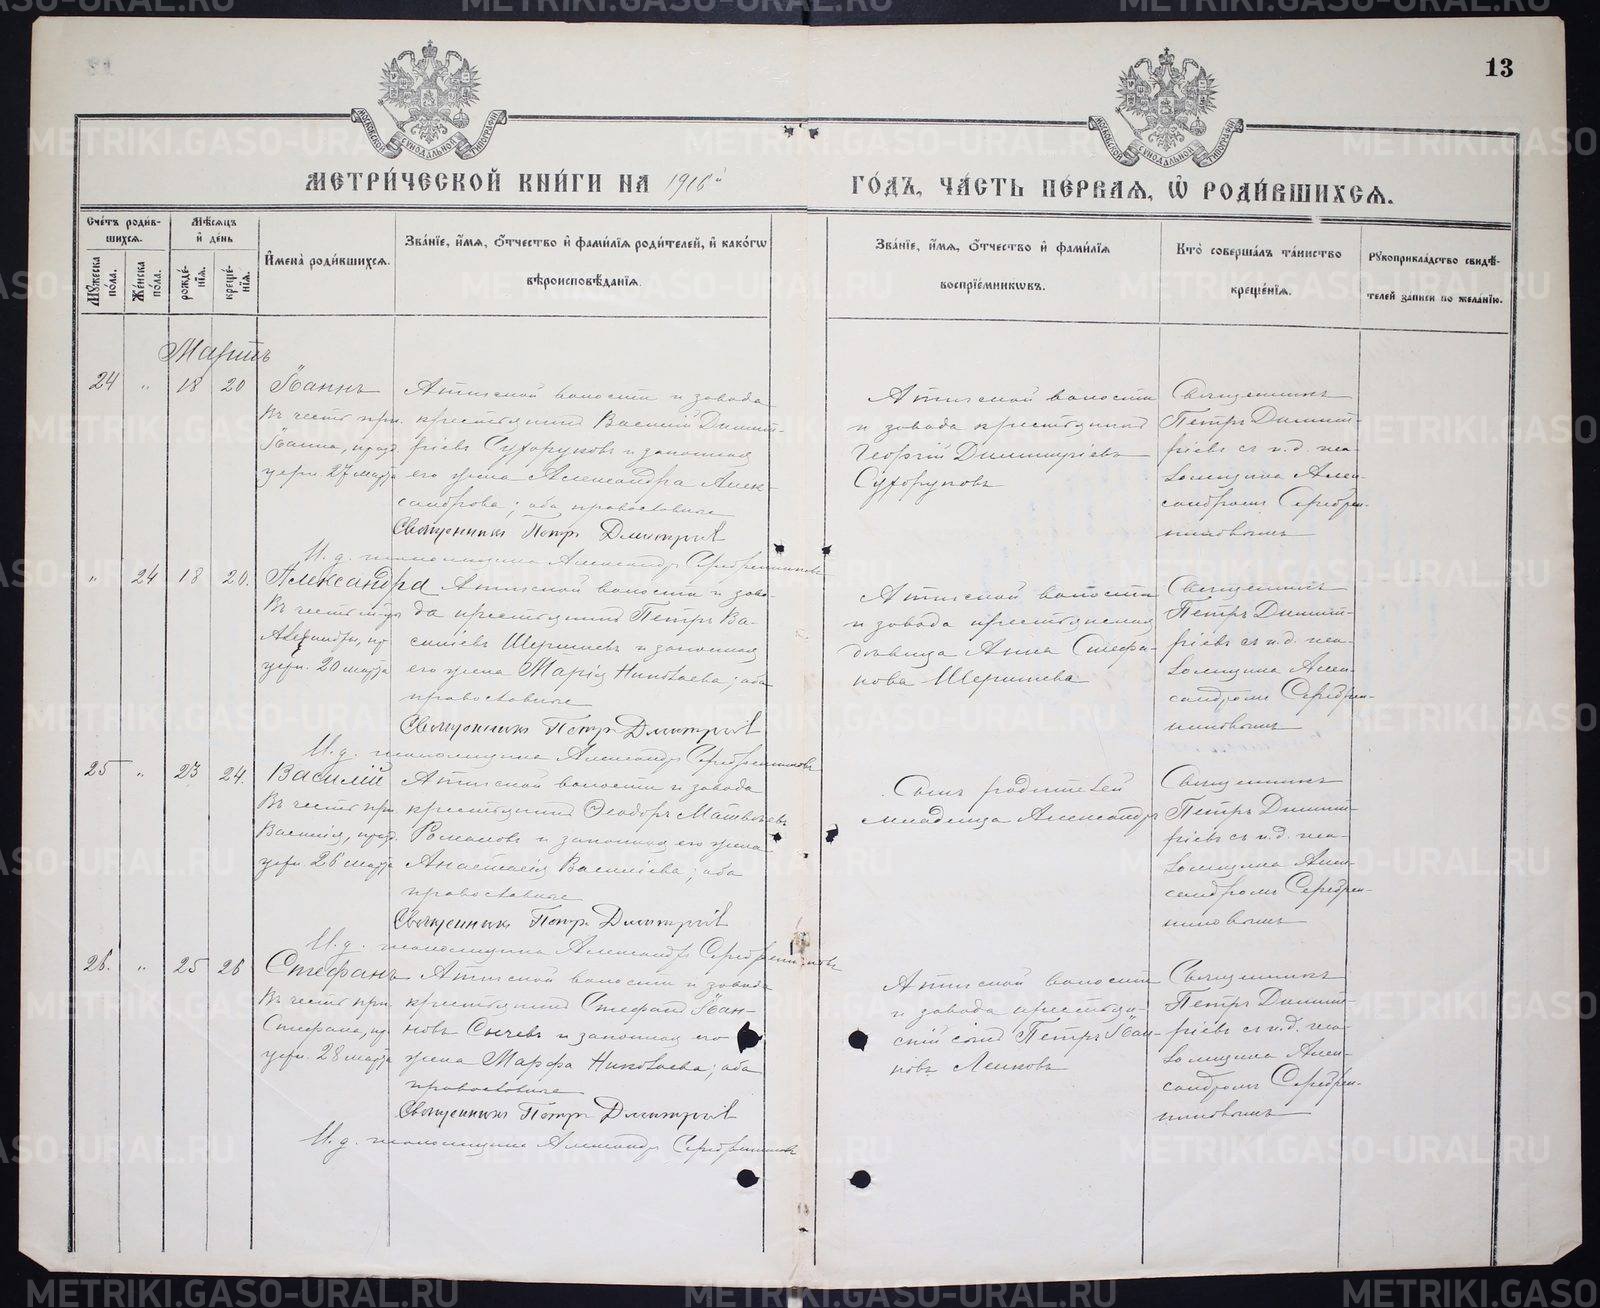 13
МЕТРИ́ЧЕСКОЙ КНИ́ГИ НА 1916й ГО́ДЪ, ЧА́СТЬ ПЕ́РВАѦ, Ѡ҆ РОДИ́ВШИХСѦ.
Сче́тъ роди́в-
шихсѧ.
Мꙋ́жеска по́ла.
Же́нска по́ла.
Мѣ́сѧцъ
и҆ де́нь
рожде́нїѧ.
креще́нїѧ.
И҆мена̀ роди́вшихсѧ.
Зва́нїе, и҆́мѧ, ѻ҆́тчество и҆ фами́лїѧ роди́телей, и҆ како́гѡ
вѣроисповѣ́данїѧ.
Зва́нїе, и҆́мѧ, ѻ҆́тчество и҆ фами́лїѧ
воспрїе́мникѡвъ.
Кто̀ соверша́лъ та́инство
креще́нїѧ.
Рꙋкоприкла́дство свидѣ́-
телей за́писи по жела́нїю.
Мартъ
24 " 18 20
Іоаннъ
Въ честь прп.
Іоанна, празд.
церк. 27 марта
Атигской волости и завода
крестьянинъ Василій Димит-
ріевъ Сухоруковъ и законная
его жена Александра Алек-
сандрова; оба православные
Священникъ Петръ Дмитріевъ
И. д. псаломщика Александръ Серебренниковъ
Атигской волости
и завода крестьянинъ
Георгій Димитріевъ
Сухоруковъ
Священникъ
Петръ Димит-
ріевъ съ и.д. пса-
ломщика Алек-
сандромъ Серебрен-
никовымъ
" 24 18 20.
Александра
Въ честь м-цы
Александры, пр.
церк. 20 марта
Атигской волости и заво-
да крестьянинъ Петръ Ва-
силіевъ Шершневъ и законная
его жена Марія Николаева; оба
православные
Священникъ Петръ Дмитріевъ
И. д. псаломщика Александръ Серебренниковъ
Атигской волости
и завода крестьянская
дѣвица Анна Стефа-
нова Шершнева
Священникъ
Петръ Димит-
ріевъ съ и.д. пса-
ломщика Алек-
сандромъ Серебрен-
никовымъ
25 " 23 24.
Василій
Въ честь прп.
Василія, празд.
церк. 26 марта
Атигской волости и завода
крестьянинъ Ѳеодоръ Матвѣевъ
Романовъ и законная его жена
Анастасія Василіева; оба
православные
Священникъ Петръ Дмитріевъ
И. д. псаломщика Александръ Серебренниковъ
Сынъ родителей
младенца Александръ
Священникъ
Петръ Димит-
ріевъ съ и.д. пса-
ломщика Алек-
сандромъ Серебрен-
никовымъ
26. " 25 26
Стефанъ
Въ честь прп.
Стефана, пр.
церк. 28 марта
Атигской волости и завода
крестьянинъ Стефанъ Іоан-
новъ Сычевъ и законная его
жена Марѳа Николаева; оба
православные
Священникъ Петръ Дмитріевъ
И. д. псаломщика Александръ Серебренниковъ
Атигской волости
и завода крестьян-
скій сынъ Петръ Іоан-
новъ Лепковъ
Священникъ
Петръ Димит-
ріевъ съ и.д. пса-
ломщика Алек-
сандромъ Серебрен-
никовымъ
METRIKI.GASO-URAL.RU